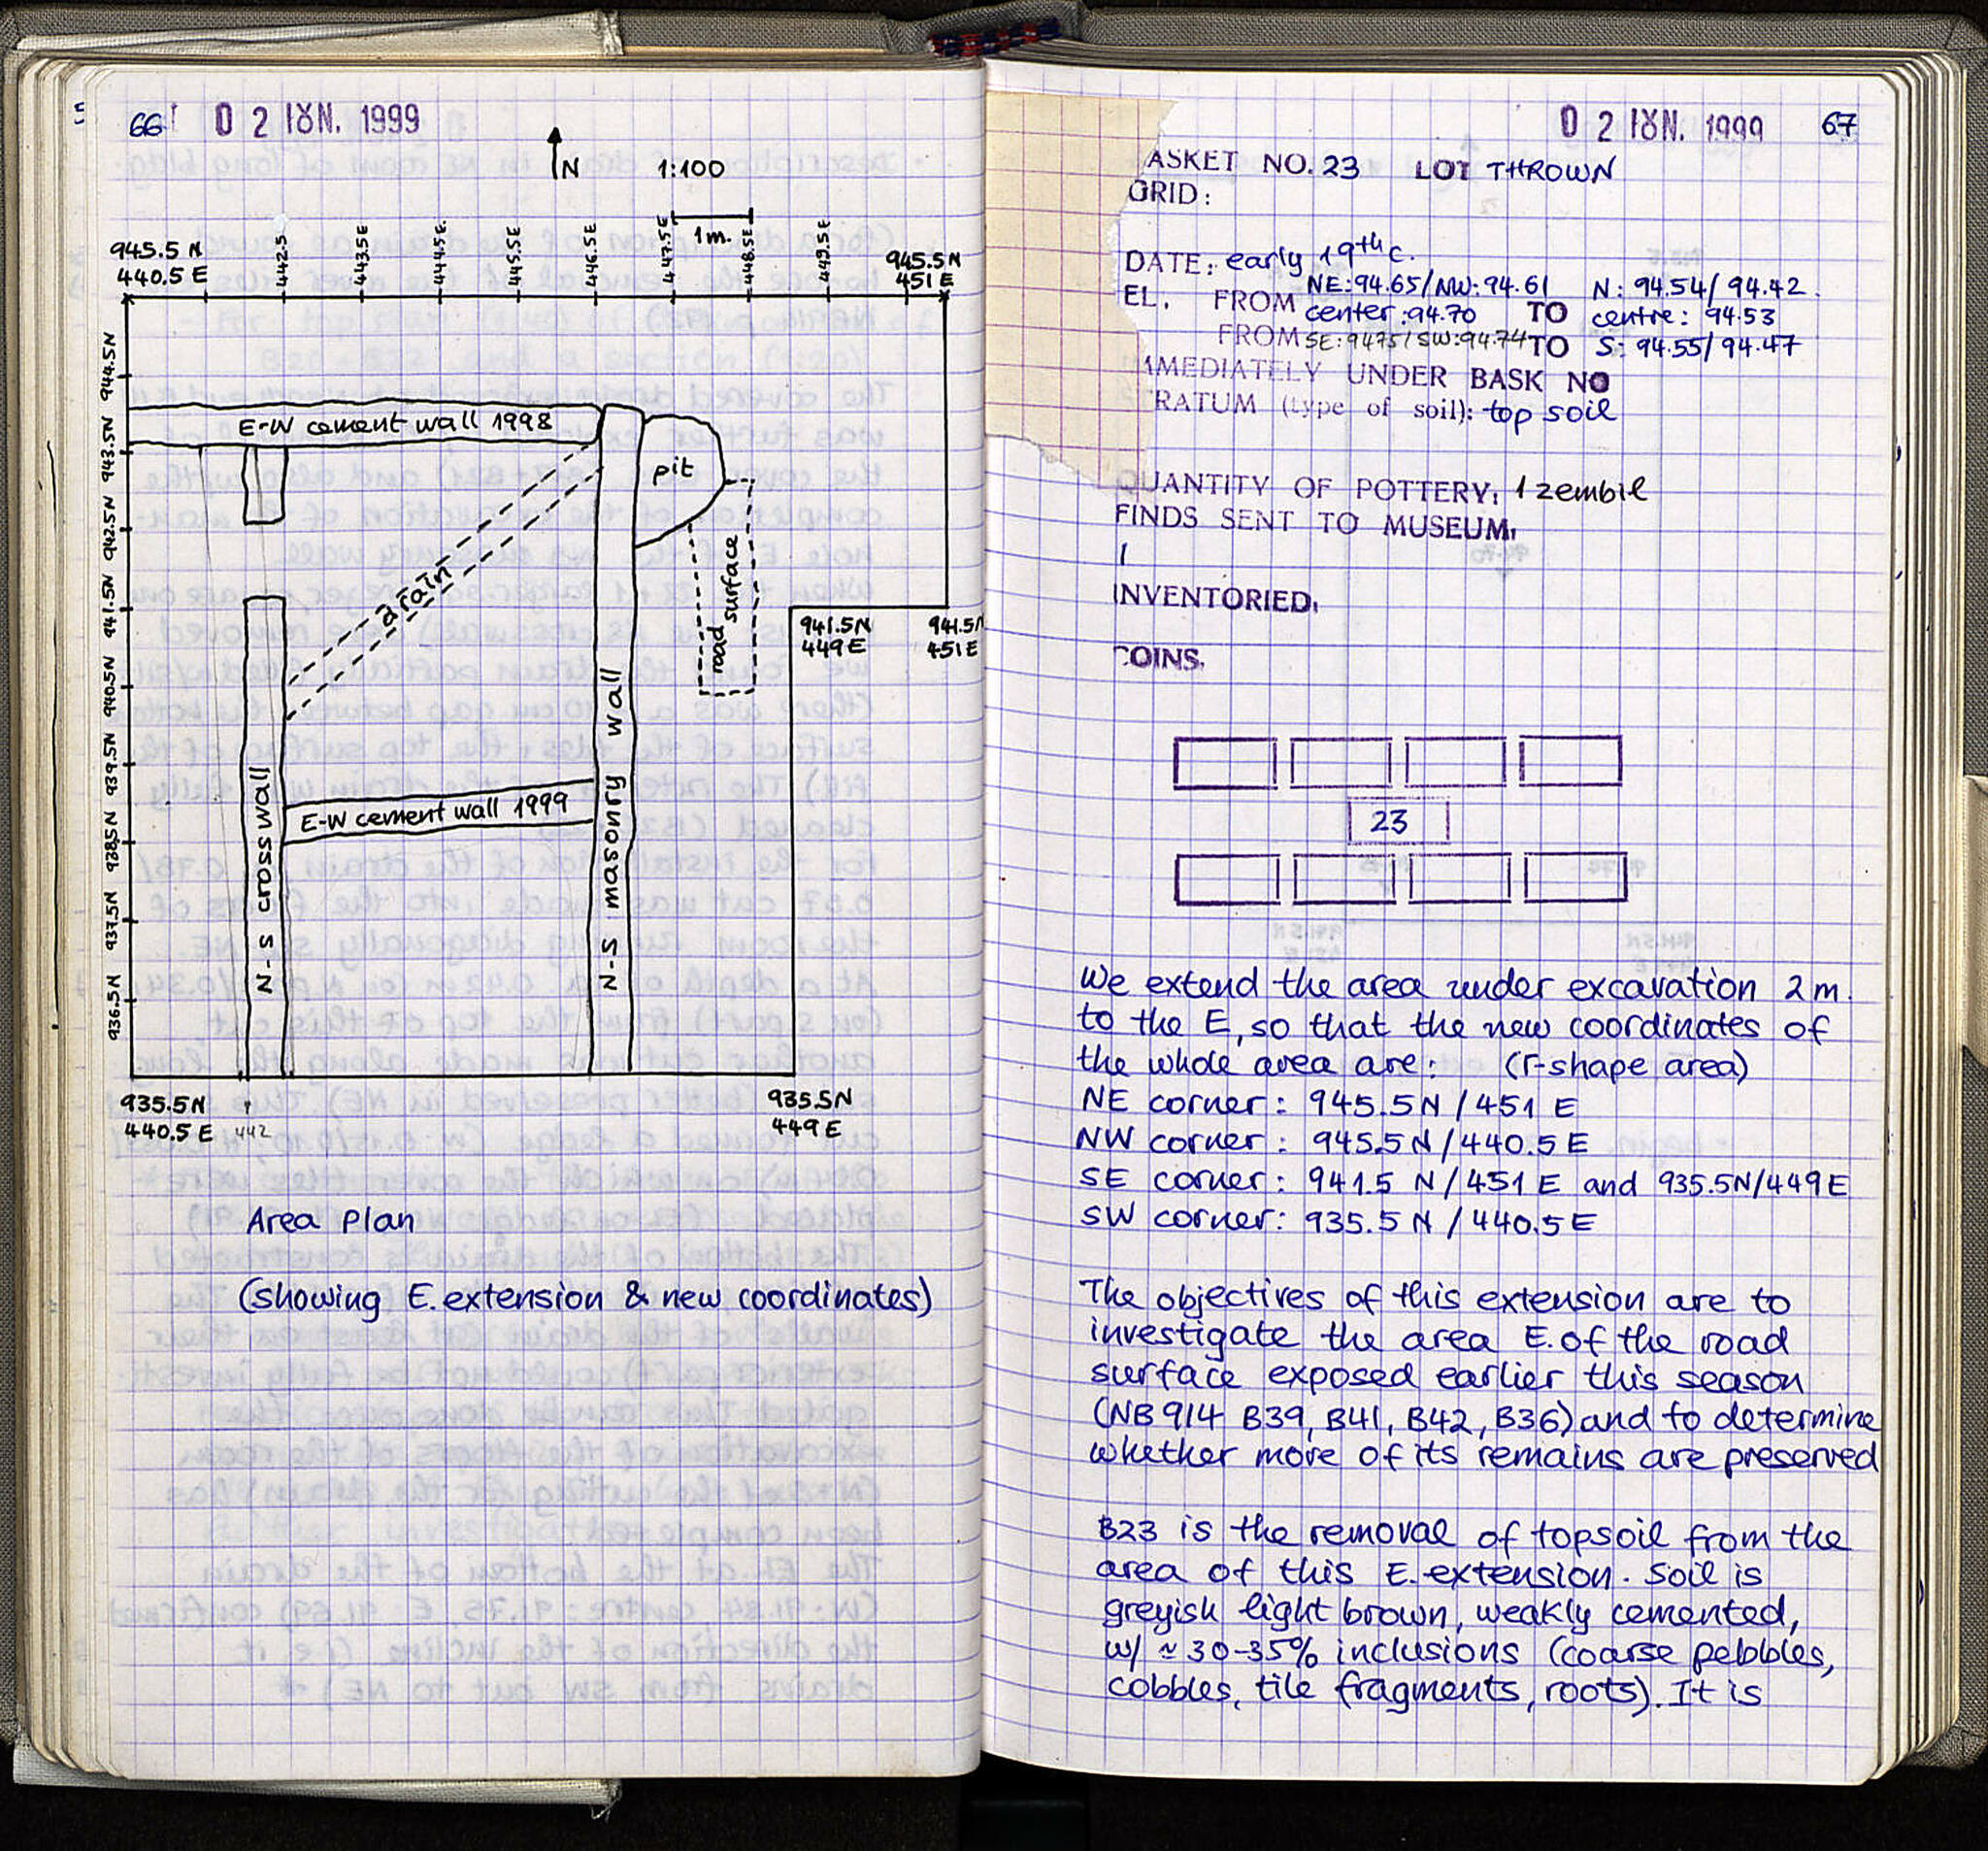 66 02 ΙΟΥΝ. 1999
N 1:100
1m.
945.5 N
440.5 E
442.5
443.5E
444.5E.
445.5E
446.5E
447.5E
448.5E
449.5E
945.5N
451E
944.5N
943.5N
942.5N
941.5N
940.5N
939.5N
938.5N
937.5N
936.5N
E-W cement wall 1998
pit
drain
road surface
941.5N
449E
941.5N
451E
N-S cross wall
E-W cement wall 1999
N-S masonry wall
935.5N
440.5 E
442
935.5N
449E
Area Plan
(showing E. extension & new coordinates)
02 ΙΟΥΝ. 1999 67
ASKET NO. 23 LOT THROWN
GRID:
DATE: early 19th c.
EL. FROM NE: 94.65/NW: 94.61 center: 94.70 TO N: 94.54/94.42. centre: 94.53
FROM SE: 94.75/SW: 94.74 TO S: 94.55/94.47
MMEDIATELY UNDER BASK NO
TRATUM (type of soil): top soil
QUANTITY OF POTTERY: 1 zembil
FINDS SENT TO MUSEUM:
/
INVENTORIED:
COINS:
23
We extend the area under excavation 2m.
to the E, so that the new coordinates of
the whole area are: (Γ-shape area)
NE corner: 945.5N/451 E
NW corner: 945.5N/440.5E
SE corner: 941.5 N/451 E and 935.5N/449E
SW corner: 935.5 N/440.5E
The objectives of this extension are to
investigate the area E. of the road
surface exposed earlier this season
(NB 914 B39, B41, B42, B36) and to determine
whether more of its remains are preserved
B23 is the removal of topsoil from the
area of this E. extension. Soil is
greyish light brown, weakly cemented,
w/ ≃ 30-35% inclusions (coarse pebbles,
cobbles, tile fragments, roots). It is